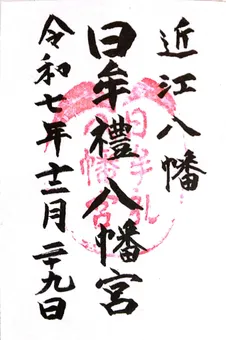 近江八幡
日牟禮八幡宮
令和七年十二月二十九日
日牟礼
八幡宮